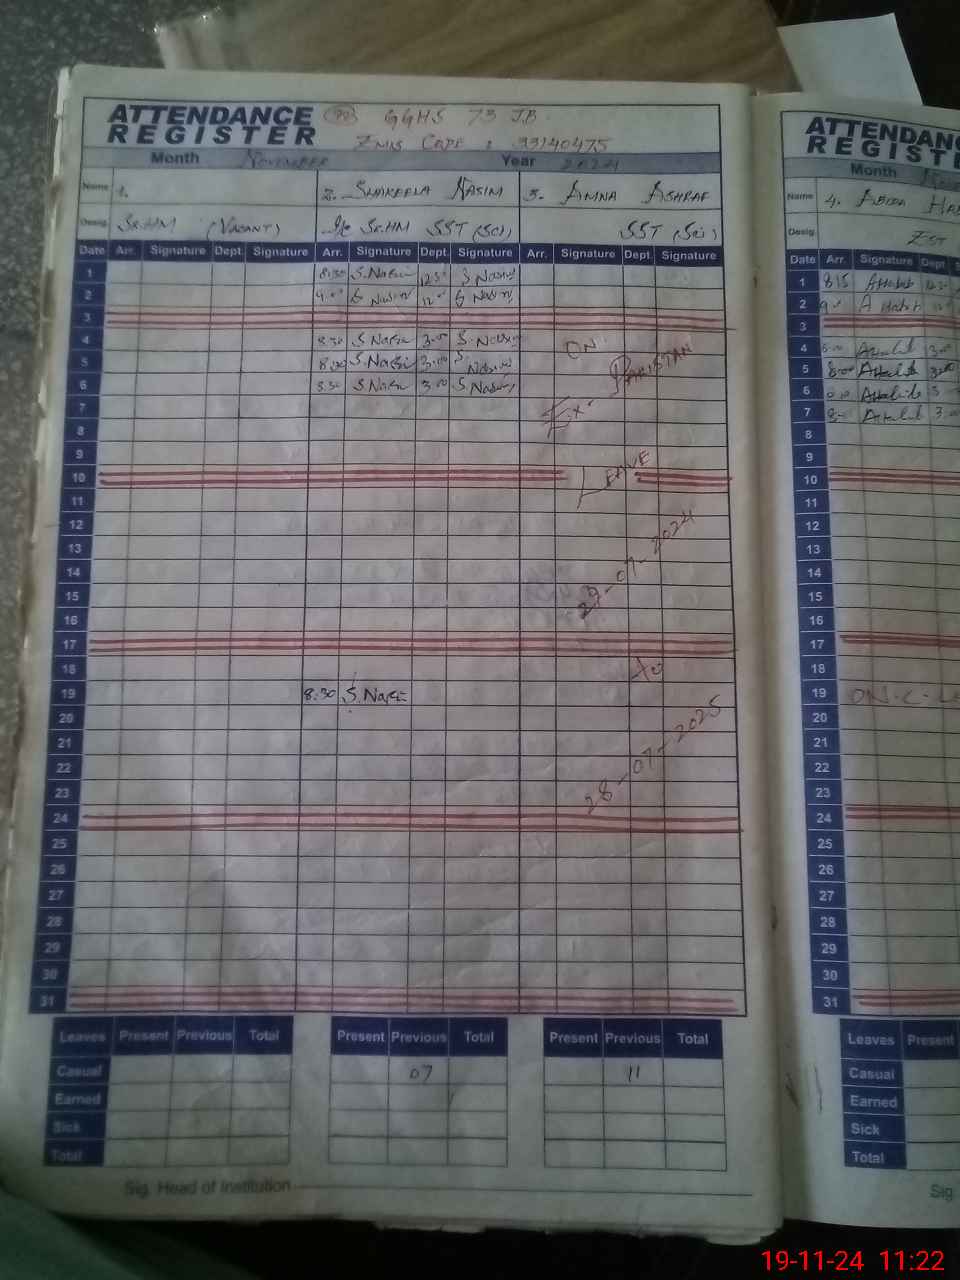 ATTENDANCE REGISTER
GGHS 73 JB
EMIS CODE : 33140475
Month November Year 2024
Name 1. 2. SHAKEELA NASIM 3. AMNA ASHRAF
Desig. Sr.HM (VACANT) I/C Sr.HM SST (SCI) SST (Sci)
Date Arr. Signature Dept. Signature Arr. Signature Dept. Signature Arr. Signature Dept. Signature
1 8:30 S.Nasim 12:30 S Nasim
2 9:00 S Nasim 12:00 S Nasim
3
4 8:30 S.Nasim 3:00 S.Nasim ON
5 8:30 S.Nasim 3:00 S Nasim
6 8:30 S.Nasim 3:00 S.Nasim
7 Ex-PAKISTAN
8
9
10 LEAVE
11
12
13
14 29-07-2024
15
16
17
18 to
19 8:30 S.Nasim
20
21
22 28-07-2025
23
24
25
26
27
28
29
30
31
Leaves Present Previous Total Present Previous Total Present Previous Total
Casual 07 11
Earned
Sick
Total
Sig. Head of Institution
ATTENDANC
REGIST
Month
Name 4. ABIDA
Desig. EST
Date Arr. Signature Dept.
1 8:15 AHabib
2 9:00 A Habib
3
4 8:00 AHabib 3:00
5 8:00 AHabib 3:00
6 AHabib 3
7 8: AHabib 3:00
8
9
10
11
12
13
14
15
16
17
18
19 ON-C-L
20
21
22
23
24
25
26
27
28
29
30
31
Leaves Present
Casual
Earned
Sick
Total
Sig.
19-11-24 11:22